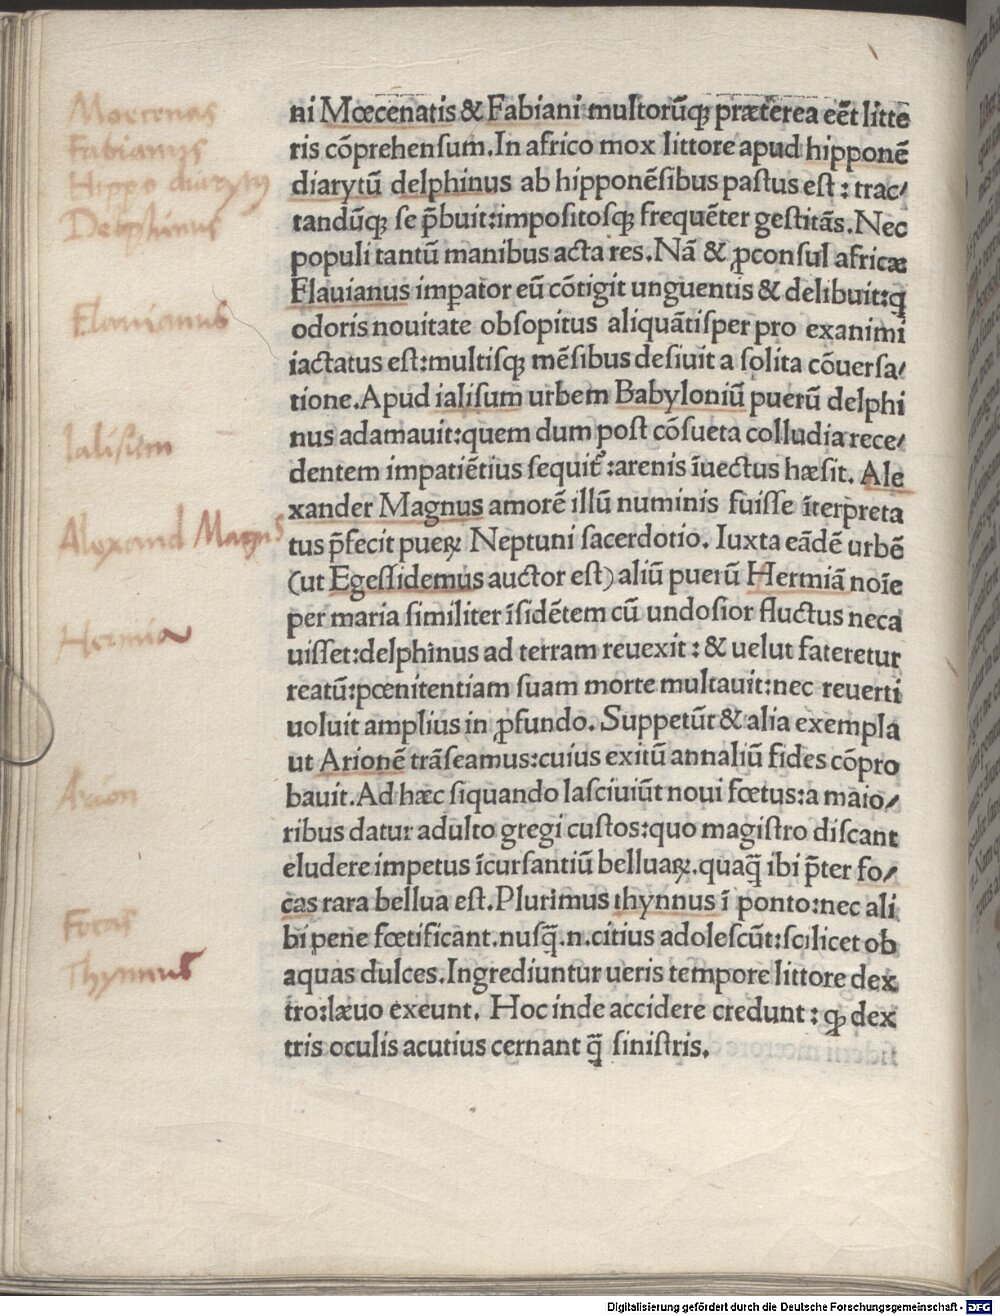 Moecenas
Fabianus
Hippo diarytus
Delphinus
Flauianus
Ialisum
Alexand Magnus
Hermia
Arion
Focas
Thynnus
ni Mœcenatis & Fabiani multorūqꝫ præterea eēt litte
ris cōprehensum.In africo mox littore apud hipponē
diarytū delphinus ab hipponēsibus pastus est : trac/
tandūqꝫ se p̄buit:impositosqꝫ frequēter gestitās.Nec
populi tantū manibus acta res.Nā & ꝓconsul africæ
Flauianus impator eū cōtigit unguentis & delibuit:q̄
odoris nouitate obsopitus aliquātisper pro exanimi
iactatus est:multisqꝫ mēsibus desiuit a solita cōuersa/
tione.Apud ialisum urbem Babyloniū puerū delphi
nus adamauit:quem dum post cōsueta colludia rece/
dentem impatiētius sequit᷑ :arenis īuectus hæsit. Ale
xander Magnus amorē illū numinis fuisse īterpreta
tus p̄fecit pueꝝ Neptuni sacerdotio. Iuxta eādē urbē
(ut Egessidemus auctor est) aliū puerū Hermiā noīe
per maria similiter īsidētem cū undosior fluctus neca
uisset:delphinus ad terram reuexit : & uelut fateretur
reatū:pœnitentiam suam morte multauit:nec reuerti
uoluit amplius in ꝓfundo. Suppetūt & alia exempla
ut Arionē trāseamus:cuius exitū annaliū fides cōpro
bauit.Ad hæc siquando lasciuiūt noui fœtus:a maio/
ribus datur adulto gregi custos:quo magistro discant
eludere impetus īcursantiū belluaꝝ.quaq̄ ibi p̄ter fo/
cas rara bellua est.Plurimus thynnus ī ponto:nec ali
bi pene fœtificant.nusq̄.n.citius adolescūt:scilicet ob
aquas dulces.Ingrediuntur ueris tempore littore dex
tro:læuo exeunt. Hoc inde accidere credunt : qꝫ dex
tris oculis acutius cernant q̄ sinistris.
Digitalisierung gefördert durch die Deutsche Forschungsgemeinschaft - DFG